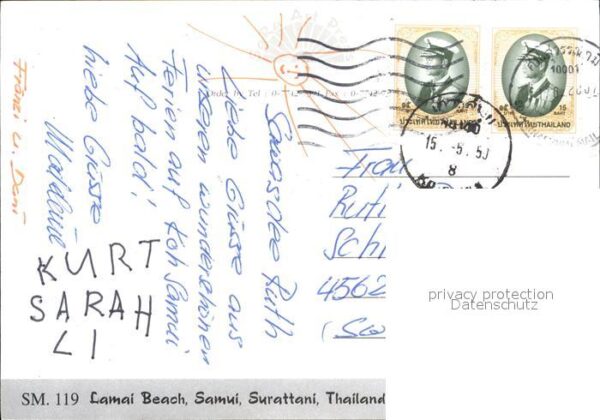 Sawasdee Ruth
Liebe Grüsse aus
unseren wunderschönen
Ferien auf Koh Samui
Auf bald!
Liebe Grüsse
KURT
SARAH
LI
Frau
Ruth
4562
privacy protection
Datenschutz
15 BAHT
ประเทศไทย THAILAND
15 BAHT
ประเทศไทย THAILAND
10001
15.-5.50
8
SM. 119 Lamai Beach, Samui, Surattani, Thailand